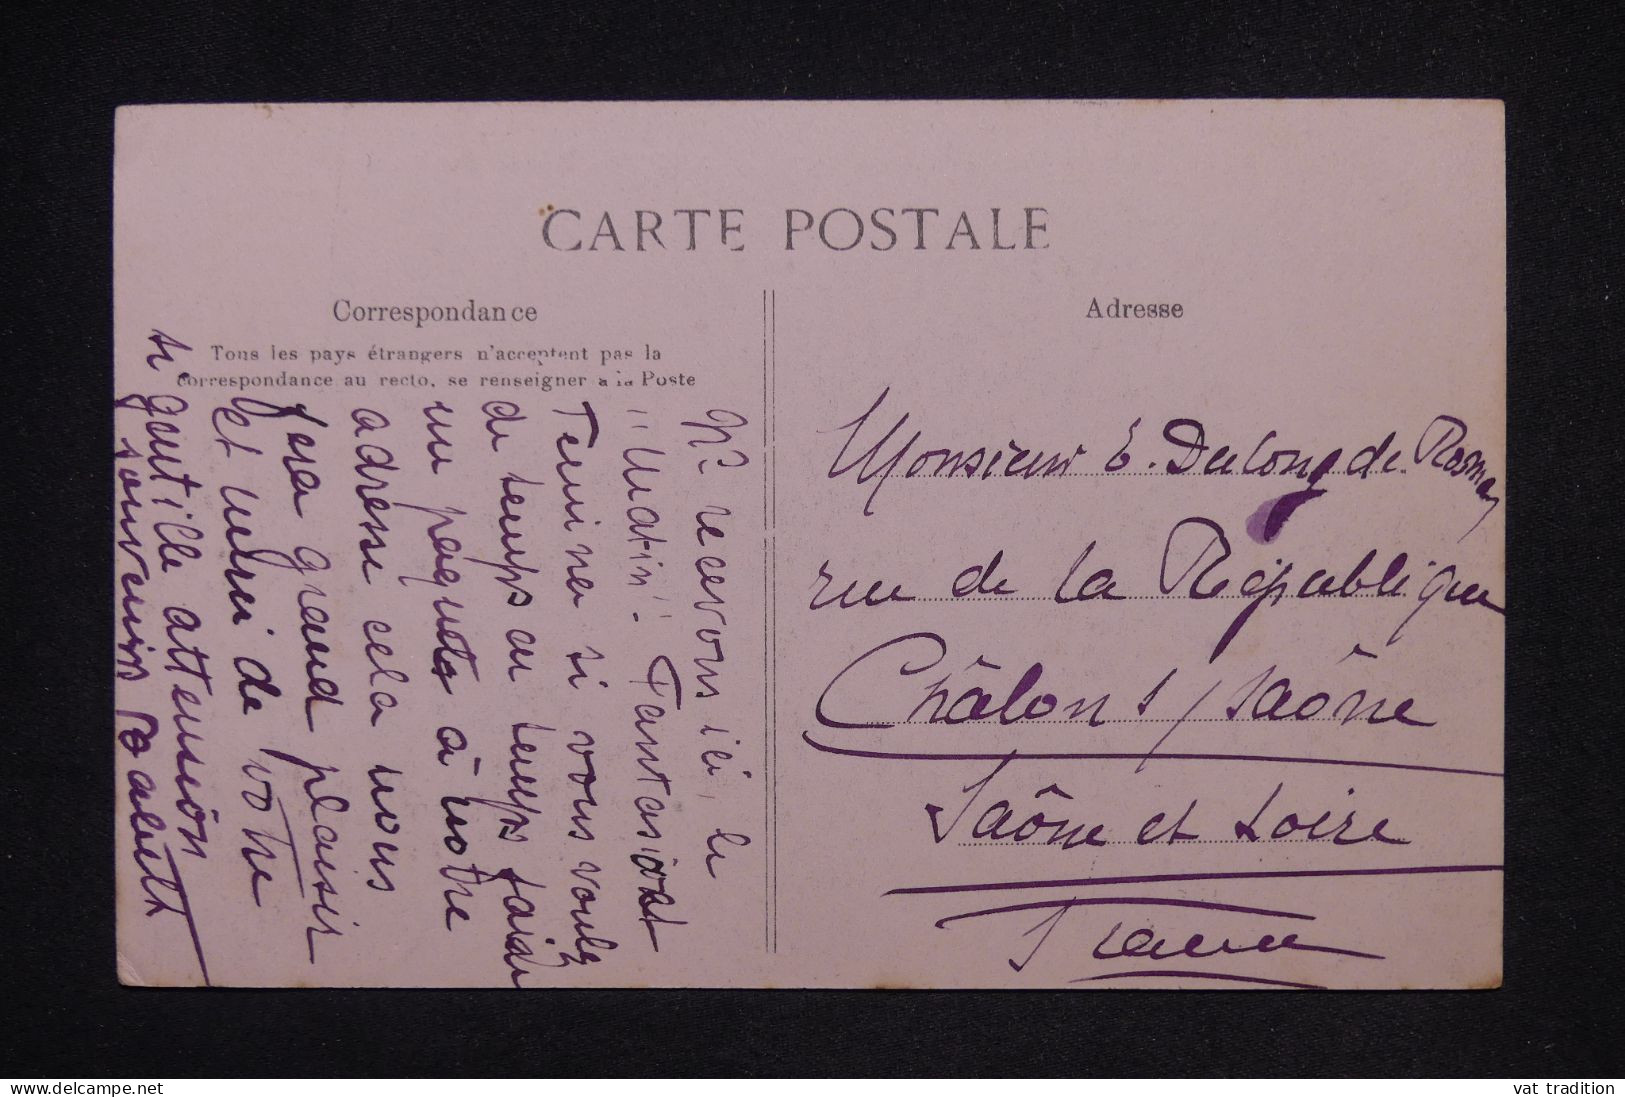 CARTE POSTALE
Correspondance
Tous les pays étrangers n'acceptent pas la
correspondance au recto, se renseigner à la Poste
Ns recevons ici, le
"Matin". Fantasio et
Femina si vous voulez
de temps en temps faire
un paquet à notre
adresse cela nous
fera grand plaisir
et merci de votre
si gentille attention
souvenirs
Adresse
Monsieur E. Dulong de Rosnay
rue de la République
Châlon s/ Saône
Saône et Loire
France
delcampe.net
vat tradition